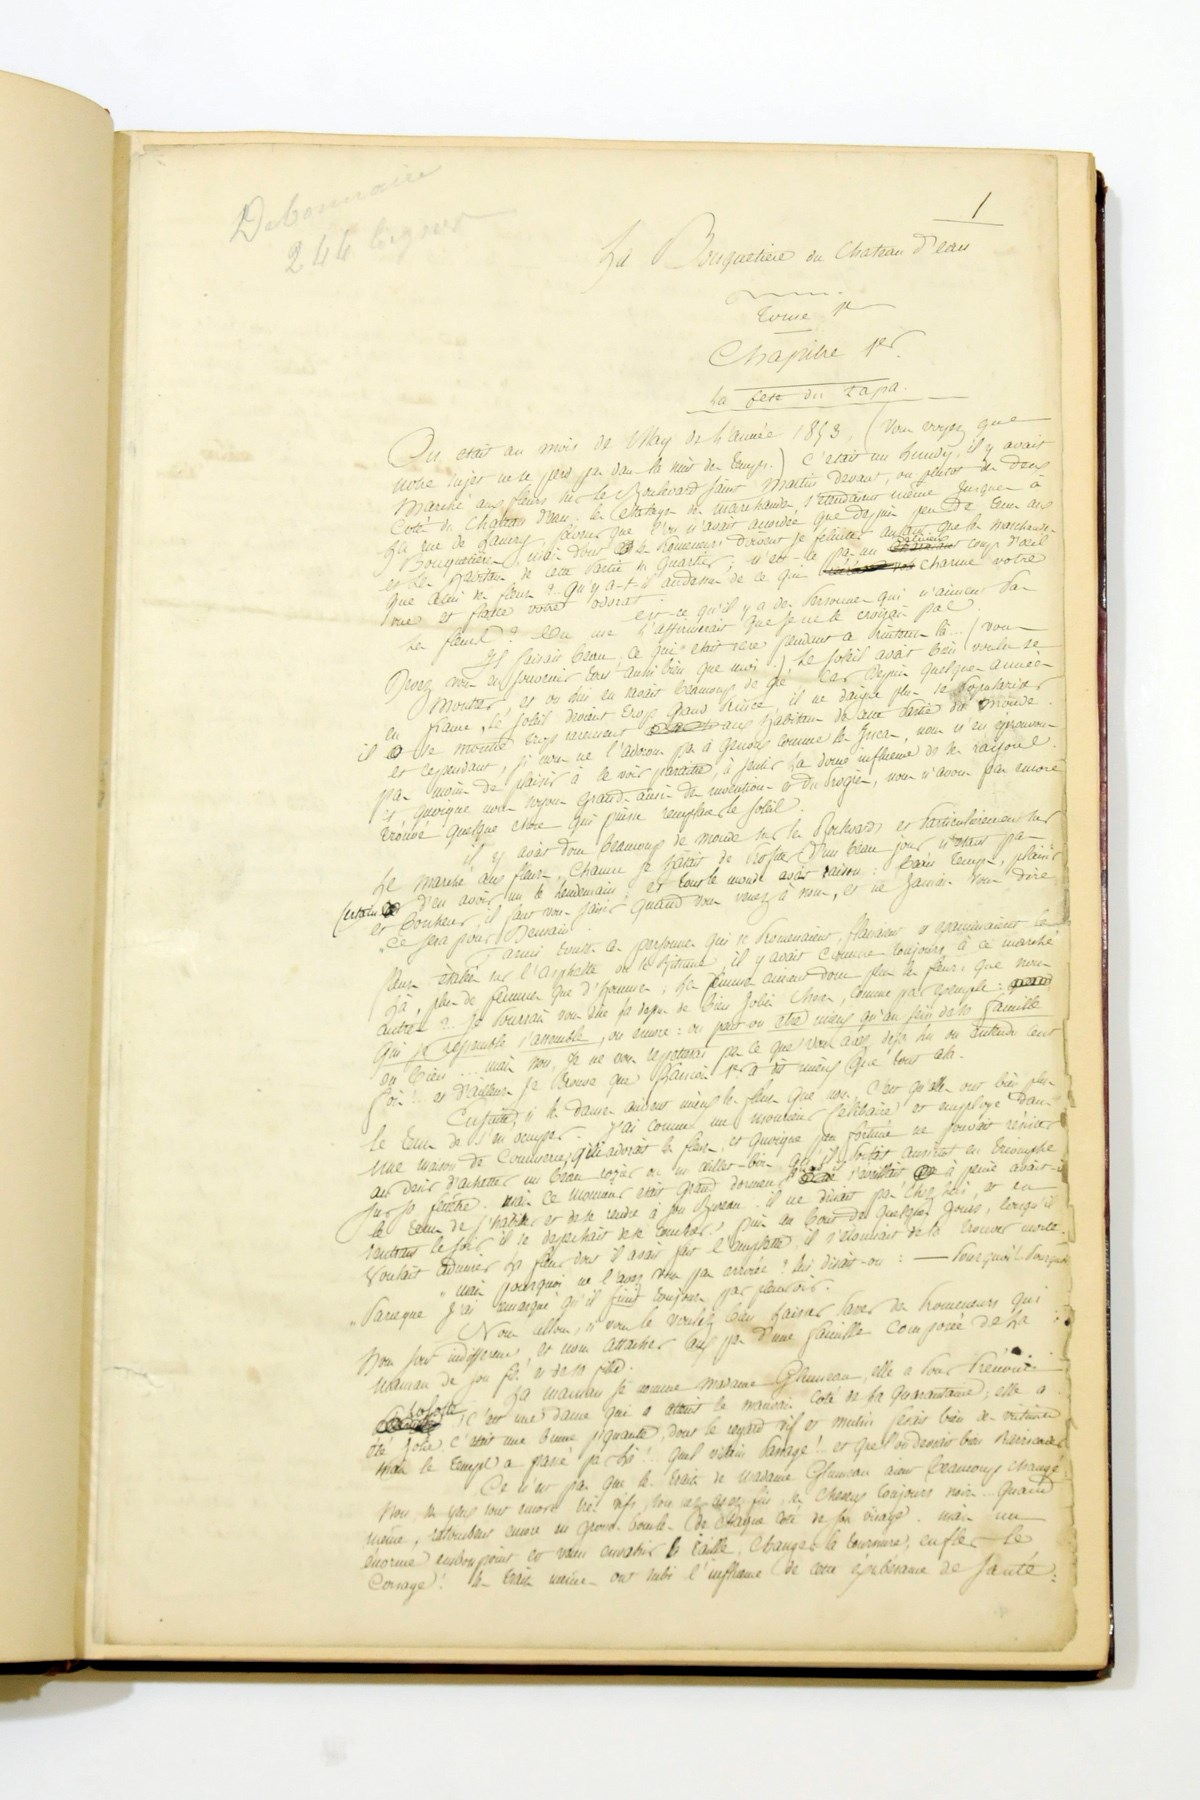 Debonnaire
244 lignes
1
La Bouquetiere du Chateau d'eau
Tome 1er
Chapitre 1er.
La fete du Papa.
On etait au mois de May de l'année 1853, (Vous voyez que
notre sujet ne se perd pas dans la nuit des temps.) C'etait un Lundy, il y avait
Marché aux fleurs sur le Boulevard Saint Martin devant, ou plutot des deux
Cotés du Chateau d'eau, les etalages des marchandes s'étendaient même jusques à
La rue de Lancry, faveur que l'on n'avait accordée que depuis peu de tems aux
Bouquetieres, mais dont les promeneurs doivent se feliciter autant que les marchandes
et les habitans de cette partie du quartier; n'est-ce pas un charmant coup d'œil
que celui des fleurs?.. Qu'y a-t-il au dessus de ce qui charme votre
vue et flatte votre odorat!
est-ce qu'il y a des personnes qui n'aiment pas
les fleurs? On me l'affirmerait que je ne le croirais pas.
Il faisait beau, ce qui etait rare pendant ce printems là... (vous
devez vous en souvenir tout aussi bien que moi.) Le soleil avait bien voulu se
montrer, et on lui en savait beaucoup de gré. Car depuis quelques années
en france, le soleil devient trop grand Prince, il ne daigne plus se populariser
il se montre trop rarement aux habitans de cette partie du monde.
et cependant, si nous ne l'adorons pas à genoux comme les Incas, nous n'en eprouvons
pas moins de plaisir à le voir paraître, à sentir la douce influence de ses rayons.
et, quoique nous soyons grands amis des inventions et du progrès, nous n'avons pas encore
trouvé quelque chose qui puisse remplacer le soleil.
il y avait donc beaucoup de monde sur les Boulevards et particulièrement sur
le marché aux fleurs. Chacun se hâtait de profiter d'un beau jour n'étant pas
certain d'en avoir un le lendemain et tout le monde avait raison: beau temps, plaisir
et bonheur, il faut vous saisir quand vous venez à nous, et ne jamais vous dire:
"ce sera pour demain."
Parmi toutes ces personnes qui se promenaient, flanaient et examinaient les
fleurs étalées sur l'asphalte ou le bitume, il y avait comme toujours à ce marché
là, plus de femmes que d'hommes; les femmes aiment donc plus les fleurs que nous
autres?... Je pourrais vous dire là dessus de bien jolies choses, comme par exemple:
Qui se ressemble s'assemble, ou encore: ou peut on etre mieux qu'au sein de sa famille
ou bien... mais non, je ne vous repeterai pas ce que vous avez deja lu ou entendu cent
fois!.. et d'ailleurs je trouve que François 1er a dit mieux que tout cela.
Ensuite, si les dames aiment mieux les fleurs que nous, c'est qu'elles ont bien plus
le tems de s'en occuper. J'ai connu un monsieur celibataire et employé dans
une maison de Commerce; qui adorait les fleurs, et quoique peu fortuné ne pouvait resister
au desir d'acheter un beau rosier ou un œillet-bien qu'il portait aussitot en triomphe
sur sa fenêtre. mais ce monsieur etait grand dormeur s'éveillait à peine avait-il
le tems de s'habiller et de se rendre à son bureau. il ne dinait pas chez lui, et en
rentrant le soir il se depechait de se coucher. puis au bout de quelques jours, lorsqu'il
voulait admirer la fleur dont il avait fait l'emplette, il s'étonnait de la trouver morte.
"mais pourquoi ne l'avez vous pas arrosée? lui disait-on: — Pourquoi!.. Pourquoi
"Parceque j'ai remarqué qu'il finit toujours par pleuvoir.
Nous allons, si vous le voulez bien laisser passer les promeneurs qui
nous sont indifférens, et nous attacher aux pas d'une famille composée de la
Maman de son fils et de sa fille.
La maman se nomme madame Glumeau, elle a pour prénom
Lolotte, c'est une dame qui a atteint le mauvais coté de la quarantaine; elle a
été jolie, c'etait une brune piquante, dont le regard vif et mutin faisait bien des victimes
mais le temps a passé par là!... quel vilain passage!.. et que l'on devrait bien
Ce n'est pas que les traits de madame Glumeau aient beaucoup changé.
Non, ses yeux sont encore très vifs, son nez assez fin, ses cheveux toujours noirs.. quand
même, retombent encore en grosses boucles de chaque coté de son visage. mais un
enorme embonpoint est venu envahir la taille, changer la tournure, enfler le
Corsage! les traits mêmes ont subi l'influence de cette exubérance de santé: